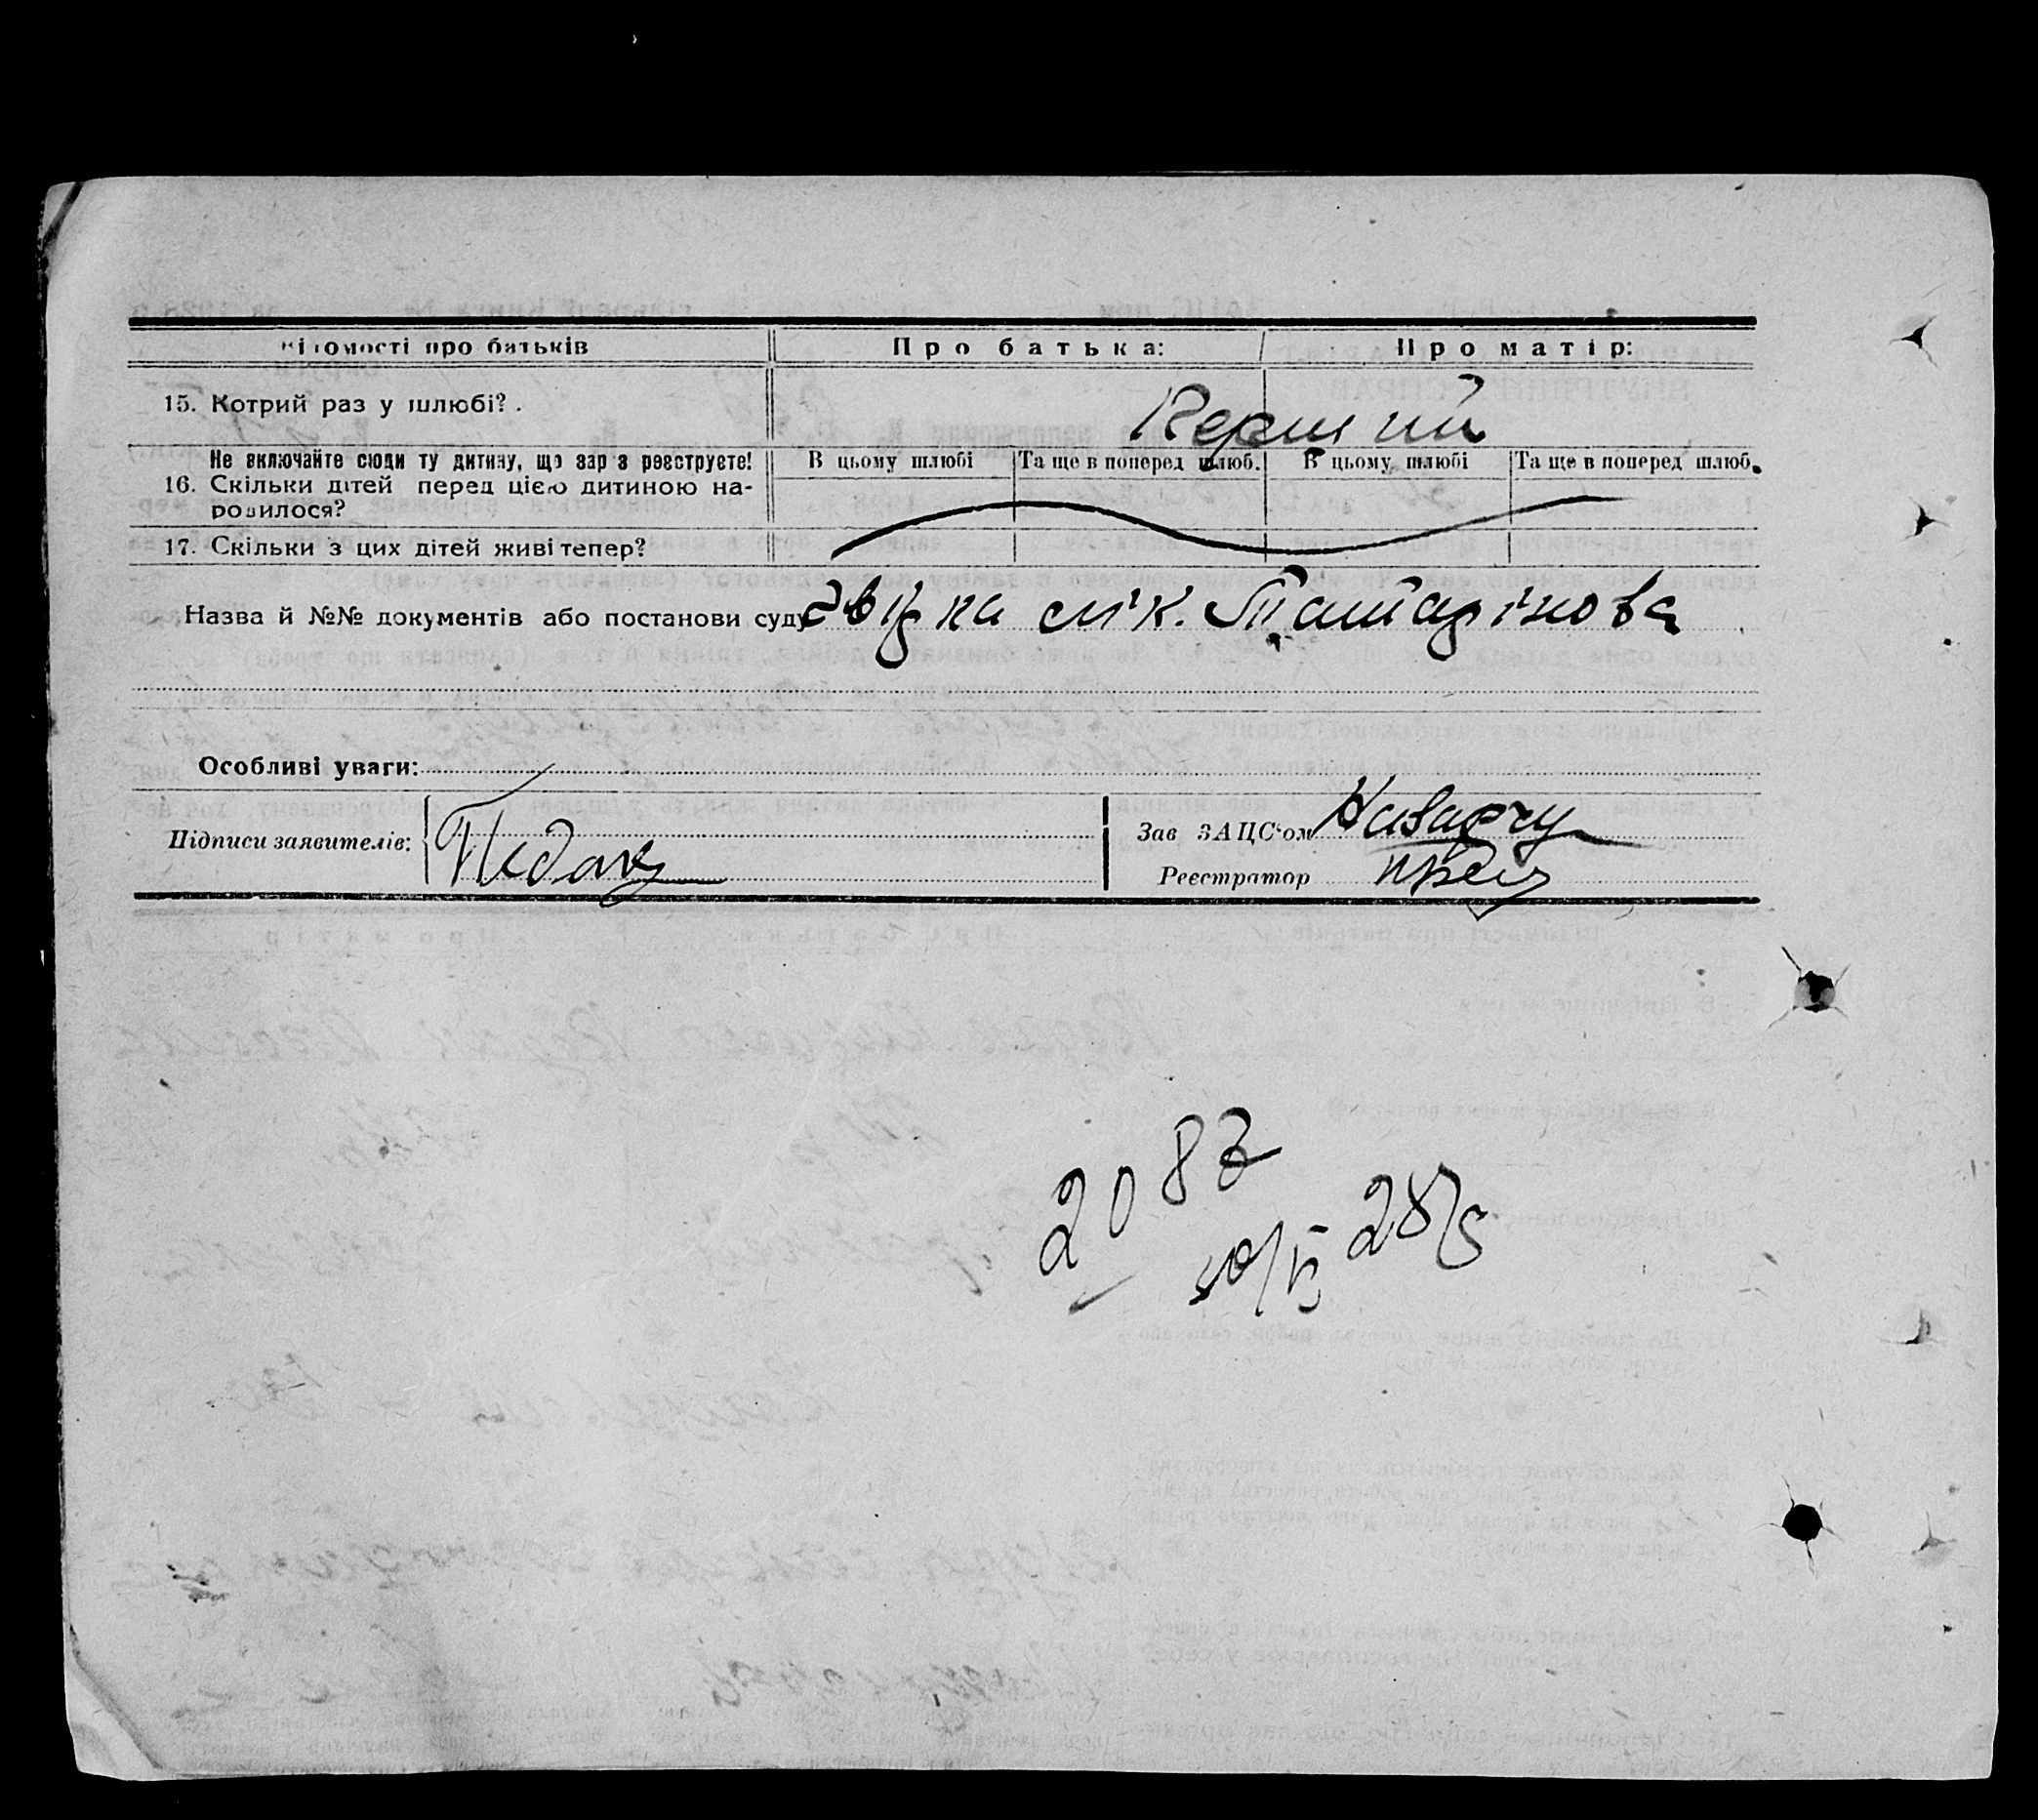 Відомості про батьків Про батька: Про матір:
15. Котрий раз у шлюбі? . Перший
Не включайте сюди ту дитину, що зараз реєструєте! В цьому шлюбі Та ще в поперед шлюб. В цьому шлюбі Та ще в поперед шлюб.
16. Скільки дітей перед цією дитиною на-
родилося?
17. Скільки з цих дітей живі тепер?
Назва й №№ документів або постанови суду Довідка лік. Татарінова
Особливі уваги:
Підписи заявителів: Зав ЗАЦС'ом
Реєстратор
2087
28